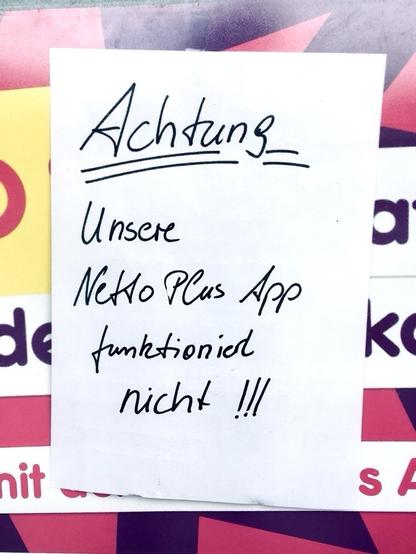 Achtung
Unsere
Netto Plus App
funktioniert
nicht !!!
de
mit
s A